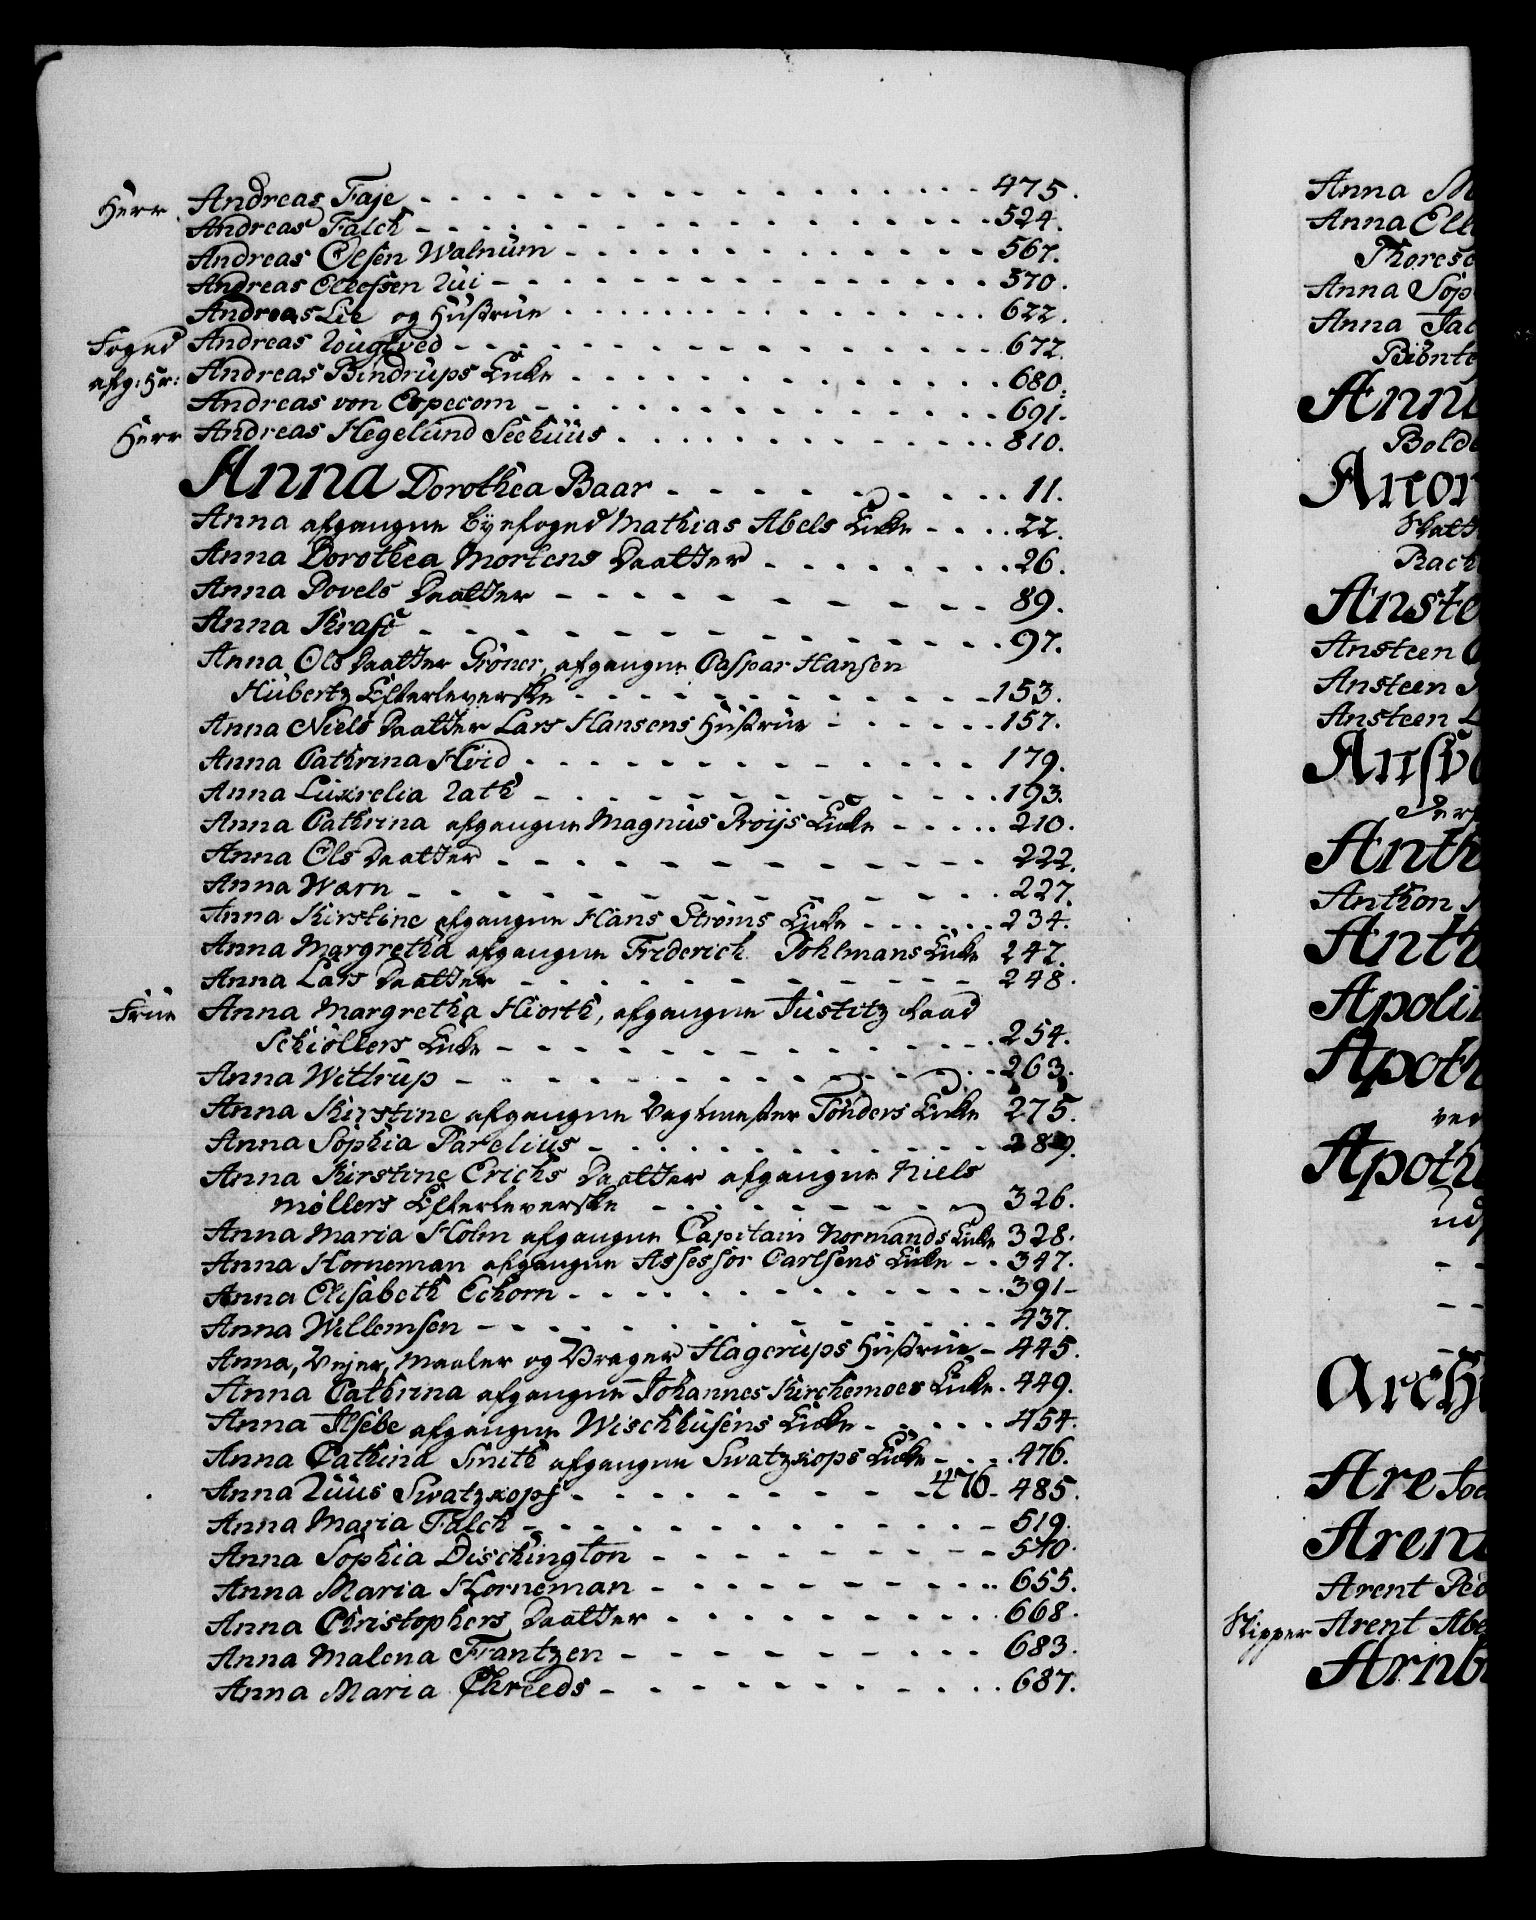 Herr Andreas Faje - - - 475.
Andreas Falch - - - 524.
Andreas Olsen Walnum - - - 567.
Andreas Ellefsen - - - 570.
Andreas Lie og Hustrue - - - 622.
Foged Andreas Rougtved - - - 672.
afg: Hr: Andreas Bindrups Enke - - - 680.
Andreas von Especom - - - 691.
Herr Andreas Hegelund Sechuus - - - 810.
Anna Dorothea Baar - - - 11.
Anna afgangne Byefoged Mathias Abels Enke - - - 22.
Anna Dorothea Mortens Daatter - - - 26.
Anna Povels Daatter - - - 89.
Anna Kraft - - - 97.
Anna Ols Daatter Gröner, afgangne Caspar Hansen
Hubertz Efterleverske - - - 153.
Anna Niels Daatter Lars Hansens Hustrue - - - 157.
Anna Cathrina Hvid - - - 179.
Anna Luxrelia - - - 193.
Anna Cathrina afgangne Magnus Proijs Enke - - - 210.
Anna Ols Daatter - - - 222.
Anna Warn - - - 227.
Anna Kirstine afgangne Hans Ströms Enke - - - 234.
Anna Margretha afgangne Friderich Pohlmans Enke 247.
Anna Lars Daatter - - - 248.
Frue Anna Margretha Hiorth, afgangne Justitz Raad
Schiöllers Enke - - - 254.
Anna Wettrup - - - 263.
Anna Kirstine afgangne Vagtmester Tönders Enke 275.
Anna Sophia Parelius - - - 289.
Anna Kirstine Erichs Daatter afgangne Niels
Möllers Efterleverske - - - 326.
Anna Maria Holm afgangne Capitain Normands Enke 328.
Anna Horneman afgangne Assessor Carlsens Enke - - 347.
Anna Elisabeth Echorn - - - 391-
Anna Willemsen - - - 437.
Anna, Vejer, Maaler og Vrager Hagerups Hustrue - 445.
Anna Cathrina afgangne Johannes Kirchemoes Enke. 449.
Anna Ilsebe afgangne Wischhusens Enke - - - 454.
Anna Cathrina Smith afgangne Swatzkops Enke - - - 476.
Anna Swatzkopf - - - 476- 485.
Anna Maria Falch - - - 519.
Anna Sophia Dischington - - - 540.
Anna Maria Horneman - - - 655.
Anna Christophers Daatter - - - 668.
Anna Malena Frantzen - - - 683.
Anna Maria - - - 687.
Anna M
Anna Ell
Thorese
Anna Sop
Anna Jac
Anna
Bold
Anste
Ansteen
Ansteen
Ansteen L
Anth
Anthon
Anth
Apoli
Apoth
ver
Apoth
ud
- -
- -
Arch
Are
Arent
Arent Ped
Skipper Arent Abe
Arnb